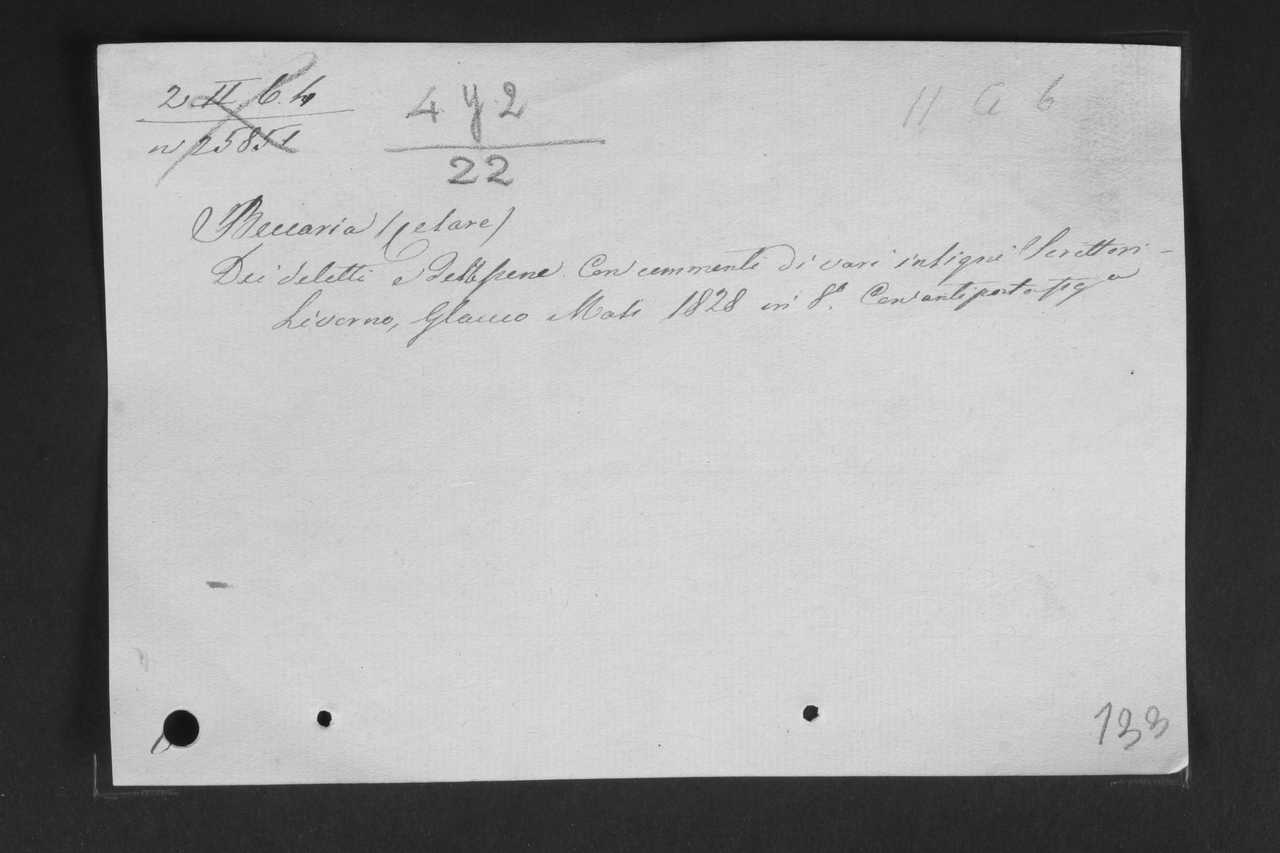 2 II 6. 4
n 25851
4 y 2
22
11 a 6
Beccaria (Cesare)
Dei deletti e delle pene. Con commenti di vari insigni Scrittori -
Livorno, Glauco Masi 1828 in 8º. Con antiporta fig.a
133